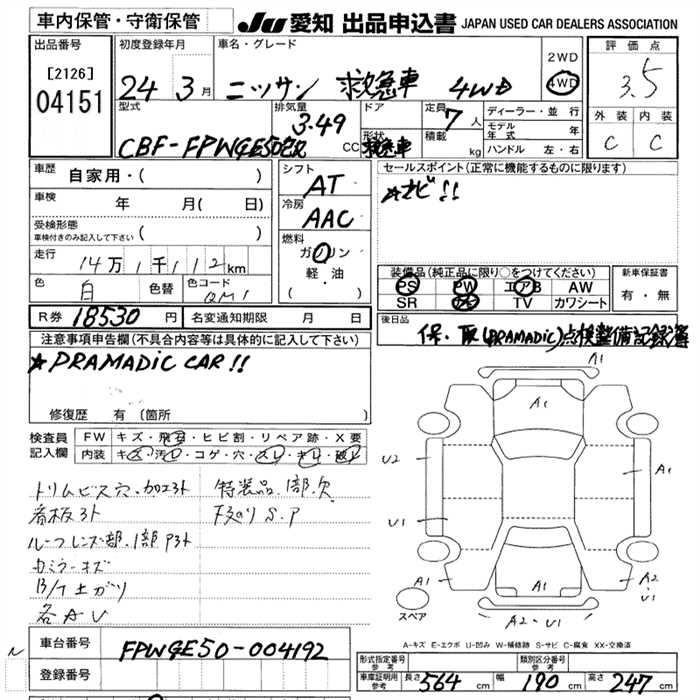 車内保管・守衛保管
JU 愛知 出品申込書 JAPAN USED CAR DEALERS ASSOCIATION
出品番号
[2126]
04151
初度登録年月
24 3月
車名・グレード
ニッサン 救急車 4WD
2WD
4WD
評価点
3.5
外装 内装
C C
型式
CBF-FPWGE50改
排気量
3.49 CC
ドア
形状
救急車
定員
7人
積載
kg
ディーラー・並行
モデル年式 年
ハンドル 左・右
車歴
自家用・( )
車検
年 月( 日)
受検形態
車検付きのみ記入して下さい ( )
走行
14万1千112km
色
白
色替
色コード
QM1
シフト
AT
冷房
AAC
燃料
ガソリン
軽・油
( )
セールスポイント(正常に機能するものに限ります)
★ナビ!!
装備品(純正品に限り○をつけてください)
PS PW エアB AW
SR ナビ TV カワシート
新車保証書
有・無
R券 18530円
名変通知期限 月 日
後日品
保・取(PRAMADIC)点検整備記録簿
注意事項申告欄(不具合内容等は具体的に記入して下さい)
★PRAMADIC CAR!!
修復歴 有(箇所 )
検査員記入欄
FW キズ・飛石・ヒビ割・リペア跡・X要
内装 キズ・汚レ・コゲ・穴・スレ・キレ・破レ
トリムビス穴.加工外 特装品1部欠
看板外 下廻りS.P
ルーフレンズ部.1部P外
カミラーキズ
B/T土ガリ
各AU
車台番号
FPWGE50-004192
登録番号
A1
A1
U2
A1
U1
A1
A1
A2・U1
A2・U1
スペア
A-キズ E-エクボ U-凹み W-補修跡 S-サビ C-腐食 XX-交換済
形式指定番号参考
類別区分番号参考
車庫証明用参考
長さ 564cm 幅 190cm 高さ 247cm